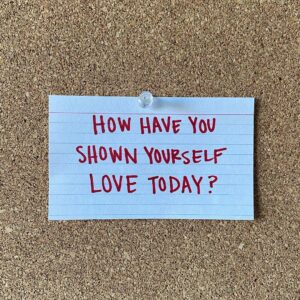 HOW HAVE YOU
SHOWN YOURSELF
LOVE TODAY?